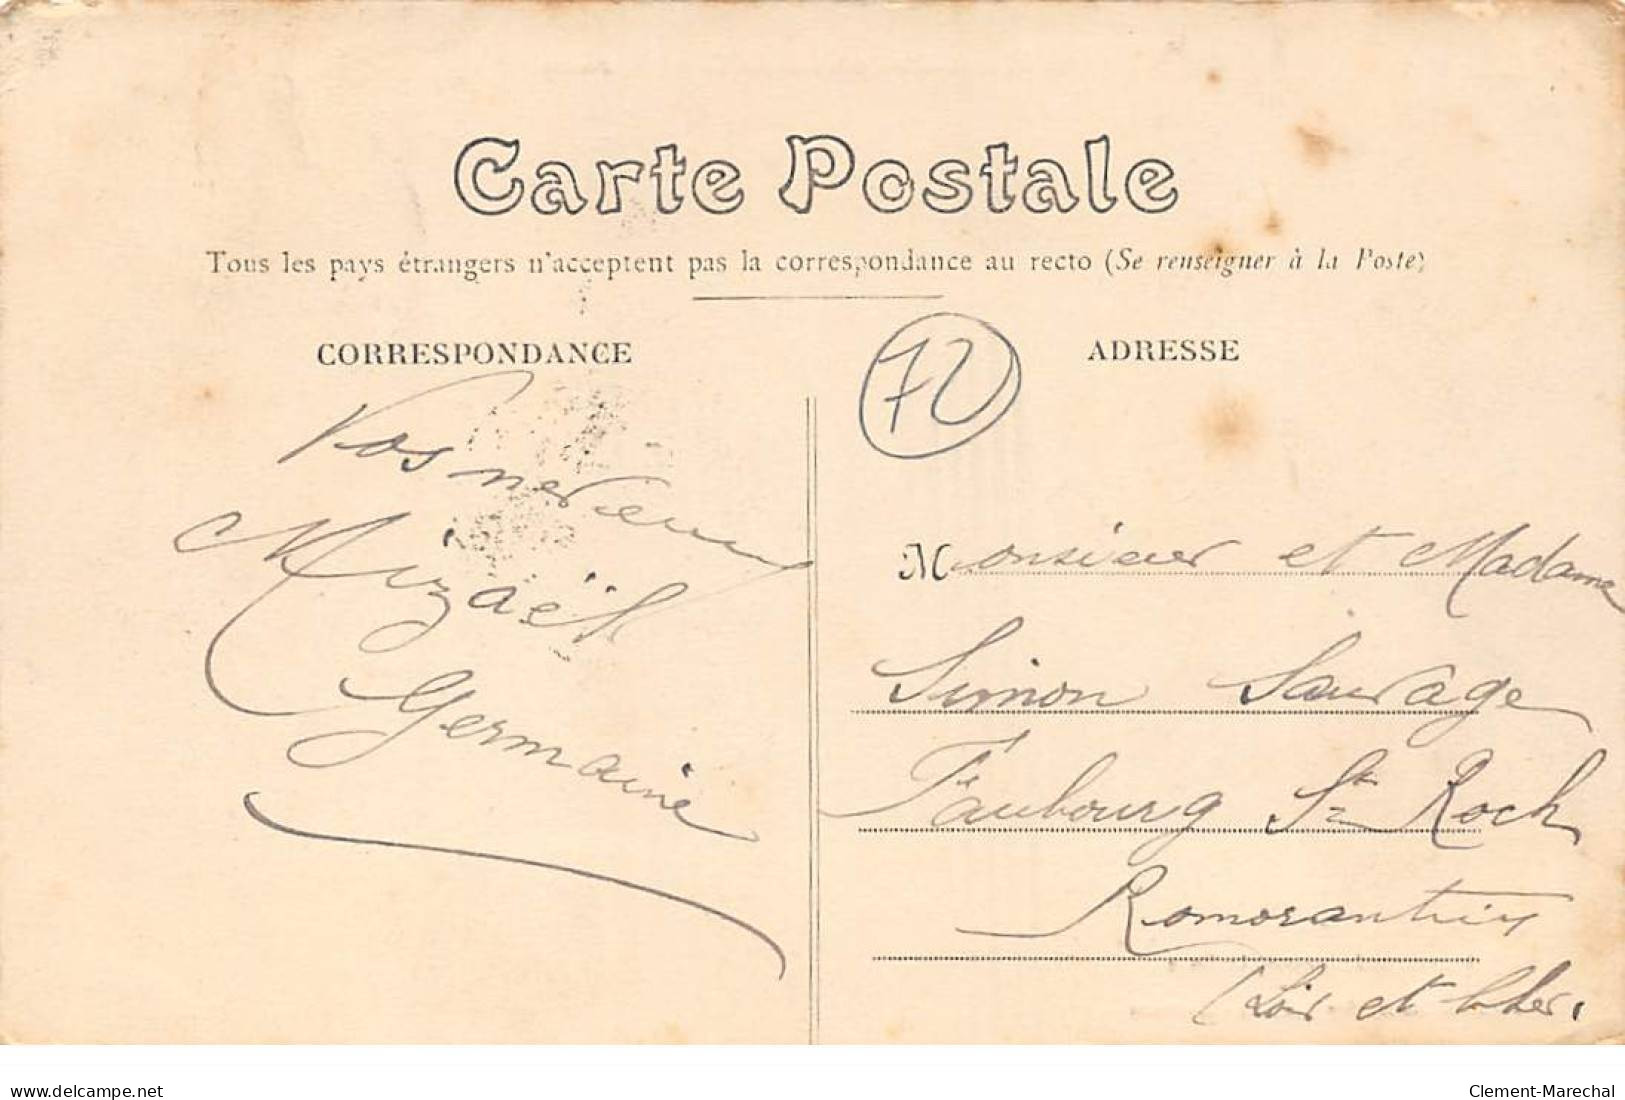 Carte Postale
Tous les pays étrangers n'acceptent pas la correspondance au recto (Se renseigner à la Poste)
CORRESPONDANCE
Vos neveux
Mizaël
Germaine
72
ADRESSE
Monsieur et Madame
Simon Sauvage
Faubourg St Roch
Romorantin
(Loir et Cher.
www.delcampe.net
Clement-Marechal